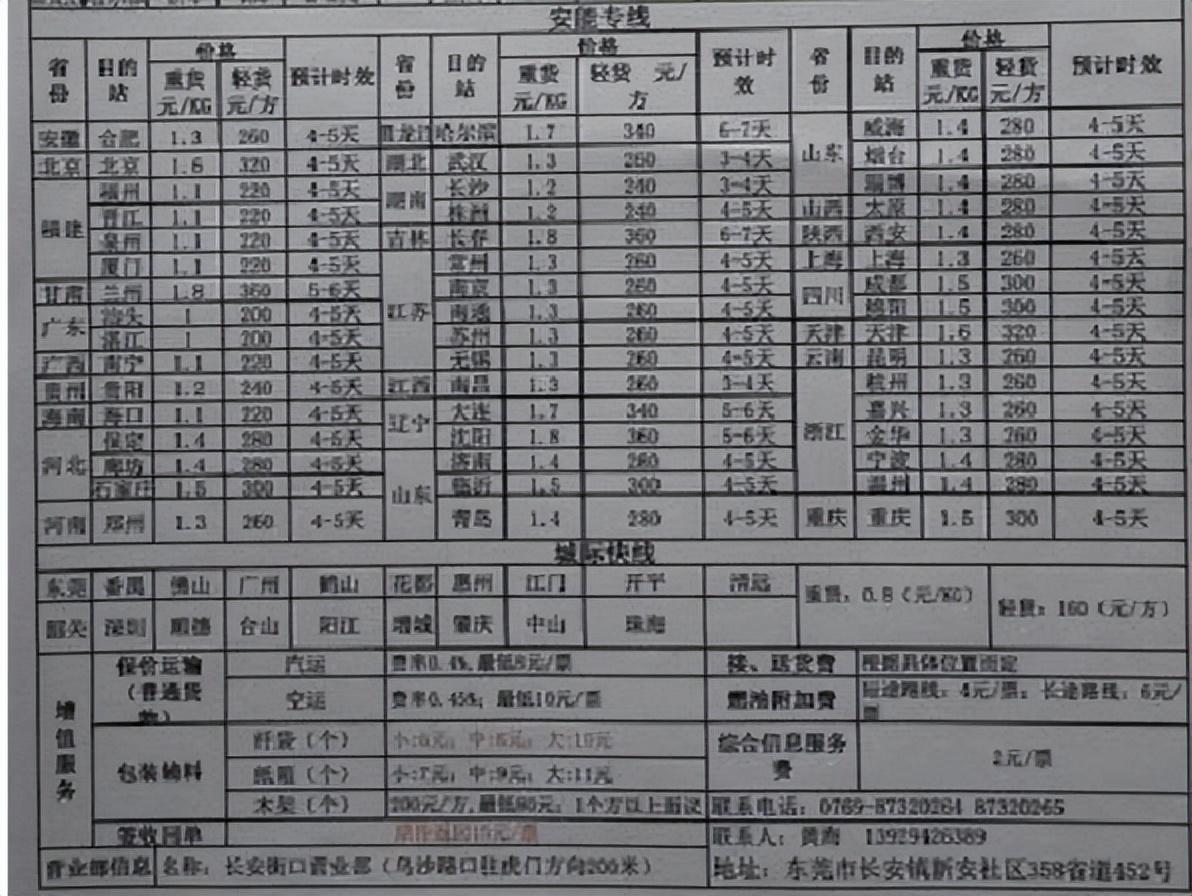 安能专线
省份 目的站 价格 预计时效 省份 目的站 价格 预计时效 省份 目的站 价格 预计时效
重货元/KG 轻货元/方 重货元/KG 轻货 元/方 重货元/KG 轻货元/方
安徽 合肥 1.3 260 4-5天 黑龙江 哈尔滨 1.7 340 6-7天 山东 威海 1.4 280 4-5天
北京 北京 1.6 320 4-5天 湖北 武汉 1.3 260 3-4天 烟台 1.4 280 4-5天
福建 福州 1.1 220 4-5天 湖南 长沙 1.2 240 3-4天 淄博 1.4 280 4-5天
晋江 1.1 220 4-5天 株洲 1.2 240 4-5天 山西 太原 1.4 280 4-5天
泉州 1.1 220 4-5天 吉林 长春 1.8 360 6-7天 陕西 西安 1.4 280 4-5天
厦门 1.1 220 4-5天 江苏 常州 1.3 260 4-5天 上海 上海 1.3 260 4-5天
甘肃 兰州 1.8 360 5-6天 南京 1.3 260 4-5天 四川 成都 1.5 300 4-5天
广东 汕头 1 200 4-5天 南通 1.3 260 4-5天 绵阳 1.5 300 4-5天
湛江 1 200 4-5天 苏州 1.3 260 4-5天 天津 天津 1.6 320 4-5天
广西 南宁 1.1 220 4-5天 无锡 1.3 260 4-5天 云南 昆明 1.3 260 4-5天
贵州 贵阳 1.2 240 4-5天 江西 南昌 1.3 260 3-4天 浙江 杭州 1.3 260 4-5天
海南 海口 1.1 220 4-5天 辽宁 大连 1.7 340 5-6天 嘉兴 1.3 260 4-5天
河北 保定 1.4 280 4-5天 沈阳 1.8 360 5-6天 金华 1.3 260 4-5天
廊坊 1.4 280 4-5天 山东 济南 1.4 280 4-5天 宁波 1.4 280 4-5天
石家庄 1.5 300 4-5天 临沂 1.5 300 4-5天 温州 1.4 280 4-5天
河南 郑州 1.3 260 4-5天 青岛 1.4 280 4-5天 重庆 重庆 1.5 300 4-5天
城际快线
东莞 番禺 佛山 广州 鹤山 花都 惠州 江门 开平 清远 重货：0.8（元/KG） 轻货：160（元/方）
韶关 深圳 顺德 台山 阳江 增城 肇庆 中山 珠海
增值服务 保价运输（普通货物） 汽运 费率0.4%，最低8元/票 接、送货费 根据具体位置而定
空运 费率0.45%；最低10元/票 燃油附加费 短途路线：4元/票；长途路线：6元/票
包装辅料 纤袋（个） 中: 大:10元 综合信息服务费 2元/票
纸箱（个） 小:7元；中:9元；大:11元
木架（个） 200元/方，最低80元；1个方以上面议 联系电话：0769-87320264 87320265
签收回单 联系人：黄海 13929426389
营业部信息 名称：长安街口营业部（乌沙路口往虎门方向200米） 地址：东莞市长安镇新安社区358省道452号